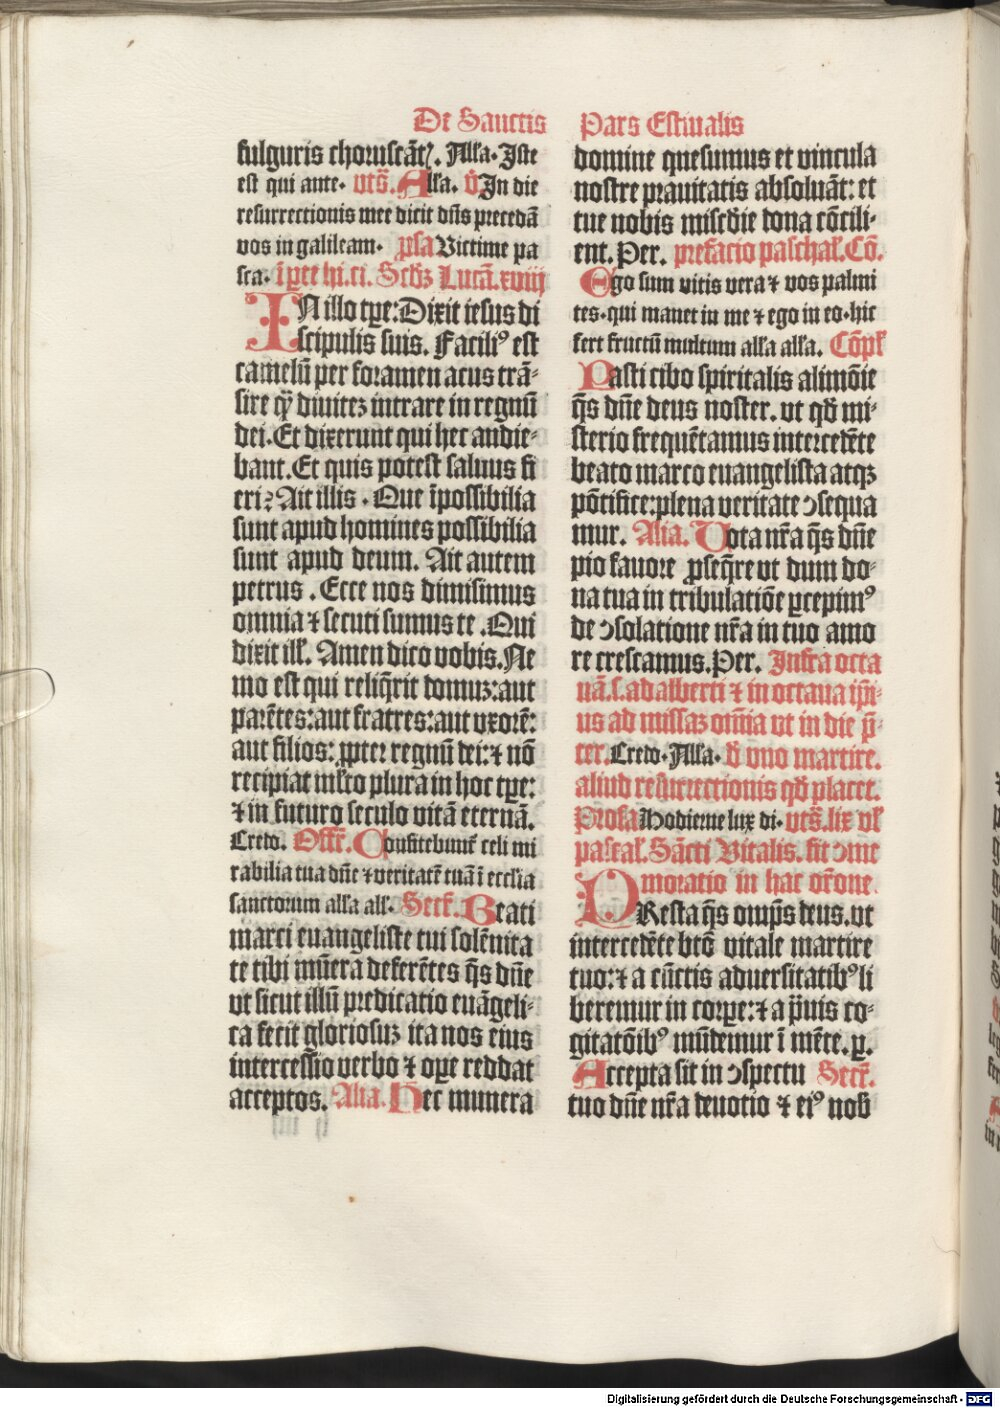 De Sanctis
fulguris choruscāt᷑. Alla. Iste
est qui ante. vts̄. Alla. V̄ In die
resurrectionis mee dicit dn̄s precedā
vos in galileam. p̄sa Victime pa
sca.
IN illo tp̄e: Dixit iesus di
scipulis suis. Faciliꝰ est
camelū per foramen acus trā-
sire qȝ diuitez intrare in regnū
dei. Et dixerunt qui hec audie-
bant. Et quis potest saluus fi
eri? Ait illis. Que īpossibilia
sunt apud homines possibilia
sunt apud deum. Ait autem
petrus. Ecce nos dimisimus
omnia ⁊ secuti sumus te. Qui
dixit ill'. Amen dico vobis. Ne
mo est qui reliq̄rit domuz: aut
parētes: aut fratres: aut vxorē:
aut filios: ꝓpter regnū dei: ⁊ nō
recipiat ml̄to plura in hoc tp̄e:
⁊ in futuro seculo vitā eternā.
Credo. Offr̄. Confitebunt᷑ celi mi
rabilia tua dn̄e ⁊ veritatē tuā ī ecclīa
sanctorum alla all'. Secr̄. Beati
marci euangeliste tui solēnita
te tibi mūera deferētes q̄s dn̄e
vt sicut illū predicatio euāgeli-
ca fecit gloriosuz ita nos eius
intercessio verbo ⁊ oꝑe reddat
acceptos. Alia. Hec munera
Pars Estiualis
domine quesumus et vincula
nostre prauitatis absoluāt: et
tue nobis misc̄die dona cōcili-
ent. Per. prefacio paschal'. Cō.
Ego sum vitis vera ⁊ vos palmi
tes. qui manet in me ⁊ ego in eo. hic
fert fructū multum alla alla. Cōpl'
Pasti cibo spiritalis alimōie
q̄s dn̄e deus noster. vt qd̄ mi-
sterio frequētamus intercedēte
beato marco euangelista atqȝ
pōtifice: plena veritate ↄsequa
mur. Alia. Vota nr̄a q̄s dn̄e
pio fauore ꝓseq̄re vt dum do-
na tua in tribulatiōe ꝑcepimꝰ
de ↄsolatione nr̄a in tuo amo
re crescamus. Per. Infra octa
uā. s. adalberti ⁊ in octaua ip̄i-
us ad missaz om̄ia vt in die p̄-
ter. Credo. Alla. d̄ vno martire.
aliud resurrectionis qd̄ placet.
Prosa Hodierne lux di. vts̄. lix vl'
pascal'. Sācti Vitalis. fit ↄme
moratio in hac or̄one.
PResta q̄s omp̄s deus. vt
intercedēte btō vitale martire
tuo: ⁊ a cūctis aduersitatibꝰ li
beremur in corꝑe: ⁊ a p̄uis co-
gitatōibꝰ mūdemur ī mēte. ꝑ.
Accepta sit in ↄspectu Secr̄.
tuo dn̄e nr̄a deuotio ⁊ eiꝰ nob̄
Digitalisierung gefördert durch die Deutsche Forschungsgemeinschaft - DFG